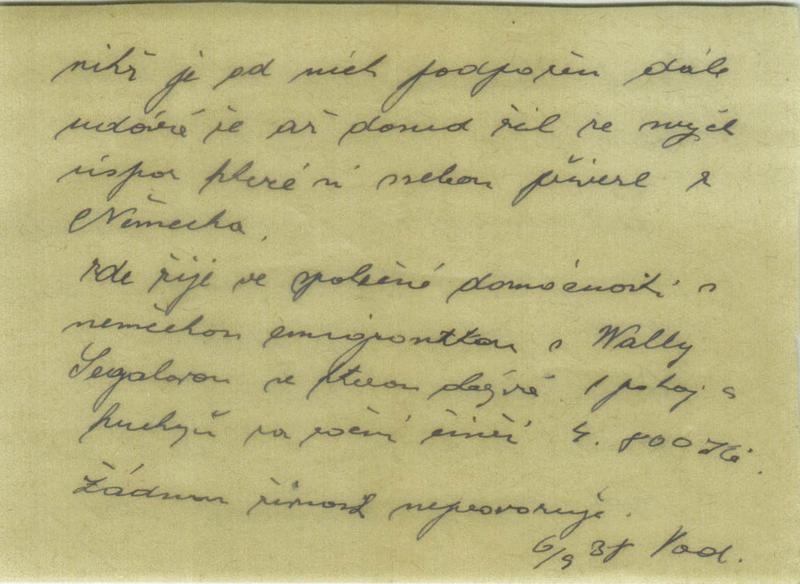 nikž je od nich podpořen dále
udává že až dosud žil ze svých
úspor které si sebou přivezl z
Německa.
zde žije ve společné domácnosti s
německou emigrantkou s Wally
Segalovou se kterou obývá 1 pokoj a
kuchyň za roční činži 4.800 Kč.
Žádnou živnost neprovozuje.
6/9 38 Vod.